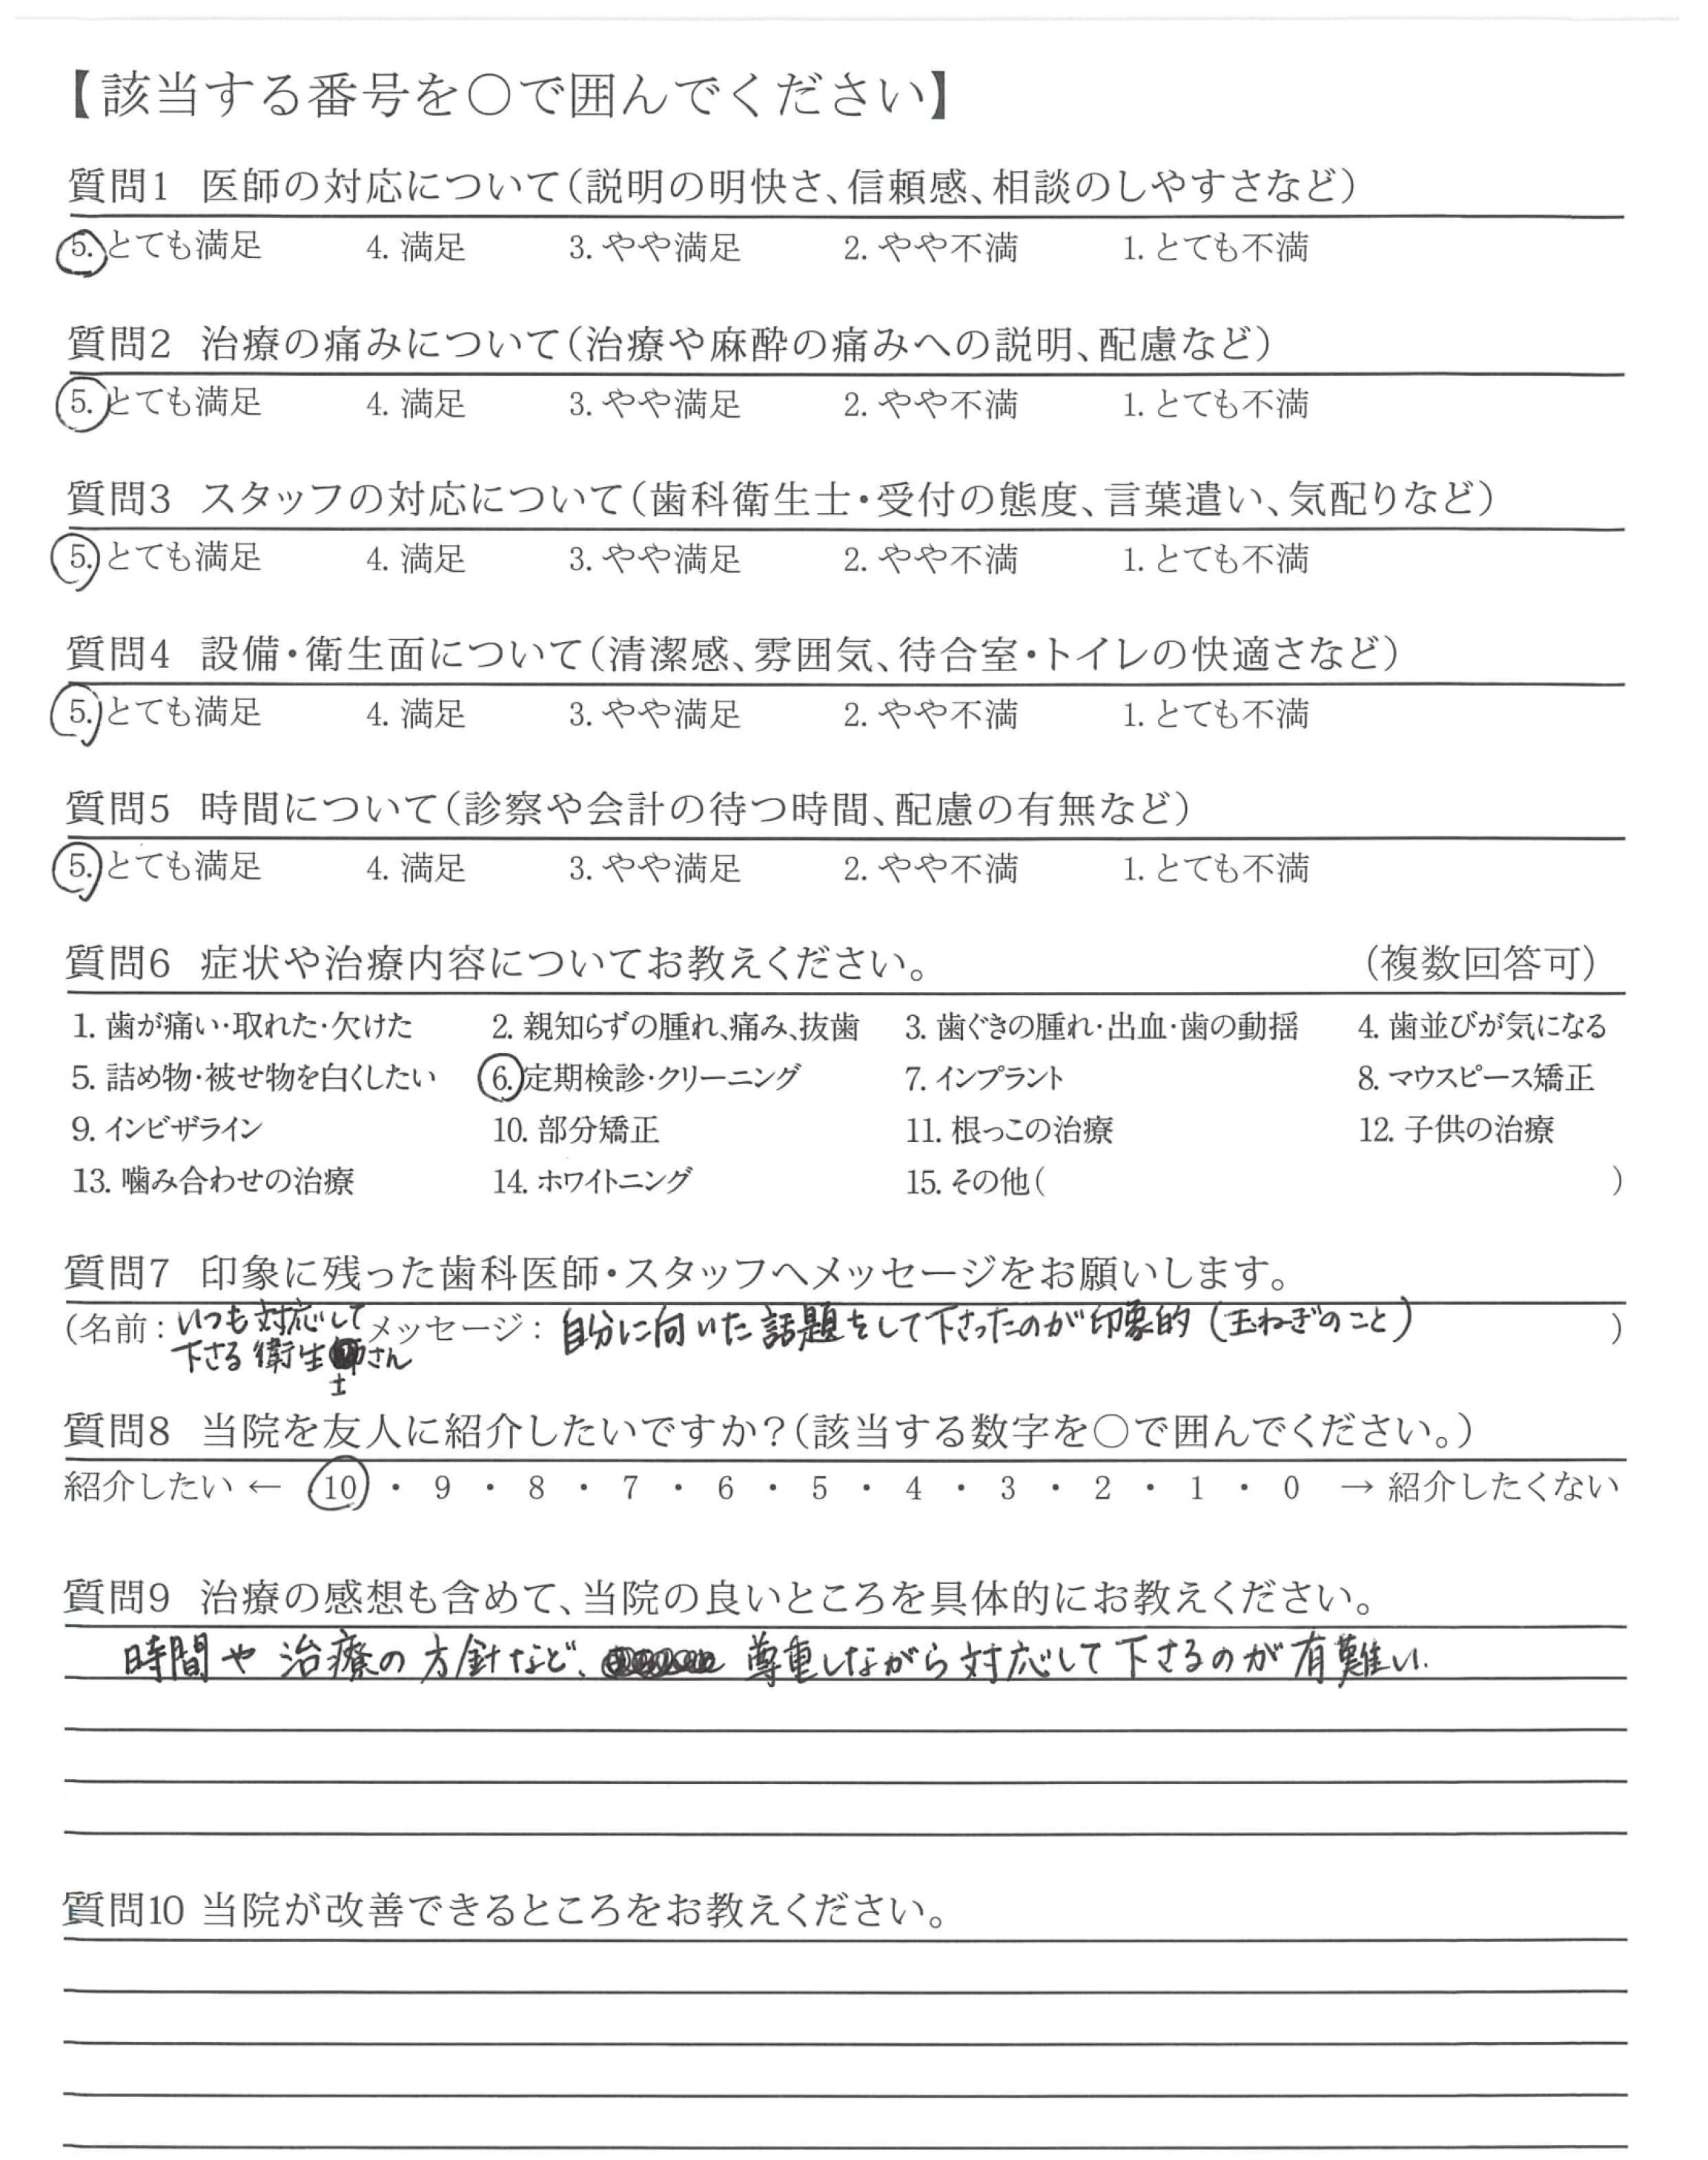 【該当する番号を○で囲んでください】
質問1 医師の対応について(説明の明快さ、信頼感、相談のしやすさなど)
5. とても満足 4. 満足 3. やや満足 2. やや不満 1. とても不満
質問2 治療の痛みについて(治療や麻酔の痛みへの説明、配慮など)
5. とても満足 4. 満足 3. やや満足 2. やや不満 1. とても不満
質問3 スタッフの対応について(歯科衛生士・受付の態度、言葉遣い、気配りなど)
5. とても満足 4. 満足 3. やや満足 2. やや不満 1. とても不満
質問4 設備・衛生面について(清潔感、雰囲気、待合室・トイレの快適さなど)
5. とても満足 4. 満足 3. やや満足 2. やや不満 1. とても不満
質問5 時間について(診察や会計の待つ時間、配慮の有無など)
5. とても満足 4. 満足 3. やや満足 2. やや不満 1. とても不満
質問6 症状や治療内容についてお教えください。 (複数回答可)
1. 歯が痛い・取れた・欠けた 2. 親知らずの腫れ、痛み、抜歯 3. 歯ぐきの腫れ・出血・歯の動揺 4. 歯並びが気になる
5. 詰め物・被せ物を白くしたい 6. 定期検診・クリーニング 7. インプラント 8. マウスピース矯正
9. インビザライン 10. 部分矯正 11. 根っこの治療 12. 子供の治療
13. 噛み合わせの治療 14. ホワイトニング 15. その他( )
質問7 印象に残った歯科医師・スタッフへメッセージをお願いします。
(名前: いつも対応して メッセージ: 自分に向いた話題をして下さったのが印象的(玉ねぎのこと) )
下さる衛生士さん
質問8 当院を友人に紹介したいですか?(該当する数字を○で囲んでください。)
紹介したい ← 10 ・ 9 ・ 8 ・ 7 ・ 6 ・ 5 ・ 4 ・ 3 ・ 2 ・ 1 ・ 0 → 紹介したくない
質問9 治療の感想も含めて、当院の良いところを具体的にお教えください。
時間や治療の方針など、尊重しながら対応して下さるのが有難い.
質問10 当院が改善できるところをお教えください。